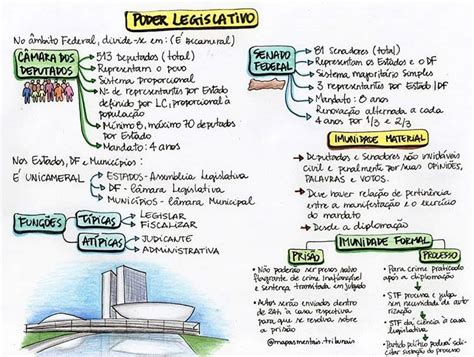 PODER LEGISLATIVO
No âmbito Federal, divide-se em: (É bicameral)
CÂMARA DOS
DEPUTADOS
513 Deputados (total)
Representam o povo
Sistema proporcional
Nº de representantes por Estado
definido por LC, proporcional à
população
Mínimo 8, máximo 70 deputados
por Estado
Mandato: 4 anos
SENADO
FEDERAL
81 Senadores (total)
Representam os Estados e o DF
Sistema majoritário simples
3 representantes por Estado | DF
Mandato: 8 anos
Renovação alternada a cada
4 anos por 1/3 e 2/3
Nos Estados, DF e Municípios:
É UNICAMERAL
ESTADOS - Assembleia Legislativa
DF - Câmara Legislativa
MUNICÍPIOS - Câmara Municipal
FUNÇÕES
TÍPICAS
LEGISLAR
FISCALIZAR
ATÍPICAS
JUDICANTE
ADMINISTRATIVA
IMUNIDADE MATERIAL
Deputados e Senadores são invioláveis
civil e penalmente por suas OPINIÕES,
PALAVRAS E VOTOS.
Deve haver relação de pertinência
entre a manifestação e o exercício
do mandato
Desde a diplomação
IMUNIDADE FORMAL
PRISÃO
Não poderão ser presos salvo
flagrante de crime inafiançável
e sentença transitada em julgado
Autos serão enviados dentro
de 24h à casa respectiva
para que se resolva sobre
a prisão
@mapasmentais.tribunais
PROCESSO
Para crime praticado
após a diplomação
STF processa e julga,
sem necessidade de autorização
STF dá ciência à casa
legislativa
Partido político poderá solicitar
sustação do processo